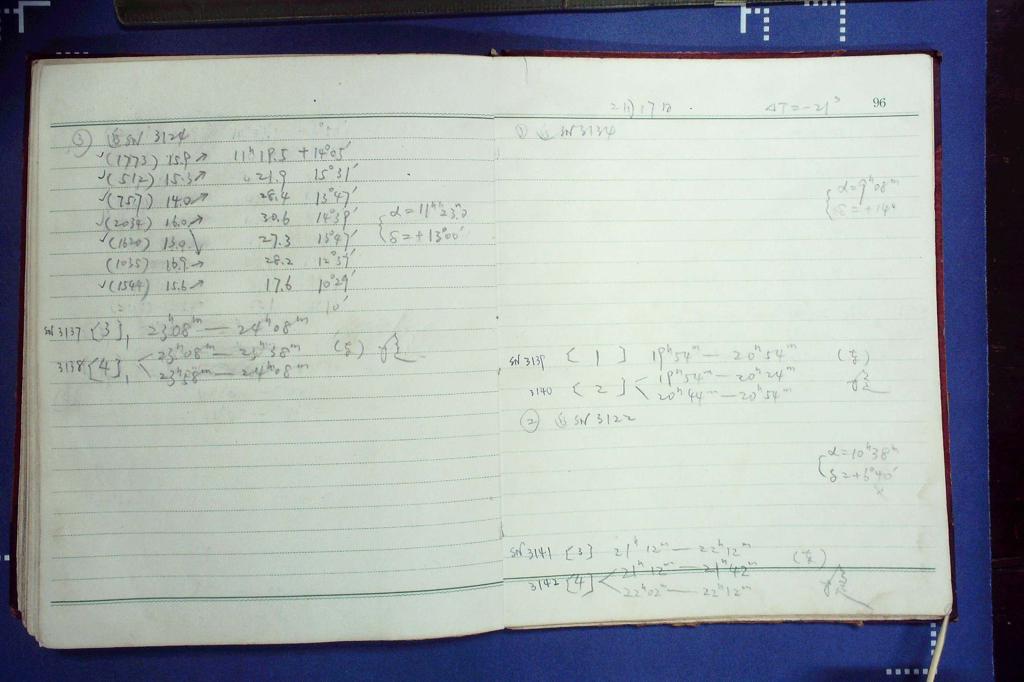 ③ SN 3124
√(1773) 15.9↗ 11ʰ19.5 +14°05′
√(512) 15.3↗ 21.9 15°31′
√(757) 14.0↗ 28.4 13°47′
√(2034) 16.0 30.6 14°39′
√(1620) 13.0 27.3 13°47′
(1035) 16.9→ 28.2 12°37′
√(1544) 15.6↗ 17.6 10°29′
{α=11ʰ23ᵐ.0
δ=+13°00′
SN 3137 [3], 23ʰ08ᵐ — 24ʰ08ᵐ
3138 [4], < 23ʰ08ᵐ — 23ʰ38ᵐ
23ʰ58ᵐ — 24ʰ08ᵐ
2月17日 ΔT=-21ˢ 96
① SN 3134
{α=9ʰ08ᵐ
δ=+14°
SN 3139 [1] 19ʰ54ᵐ — 20ʰ54ᵐ
3140 [2] < 19ʰ54ᵐ — 20ʰ24ᵐ
20ʰ44ᵐ — 20ʰ54ᵐ
② SN 3122
{α=10ʰ38ᵐ
δ=+6°40′
SN 3141 [3] 21ʰ12ᵐ — 22ʰ12ᵐ
3142 [4] < 21ʰ12ᵐ — 21ʰ42ᵐ
22ʰ02ᵐ — 22ʰ12ᵐ